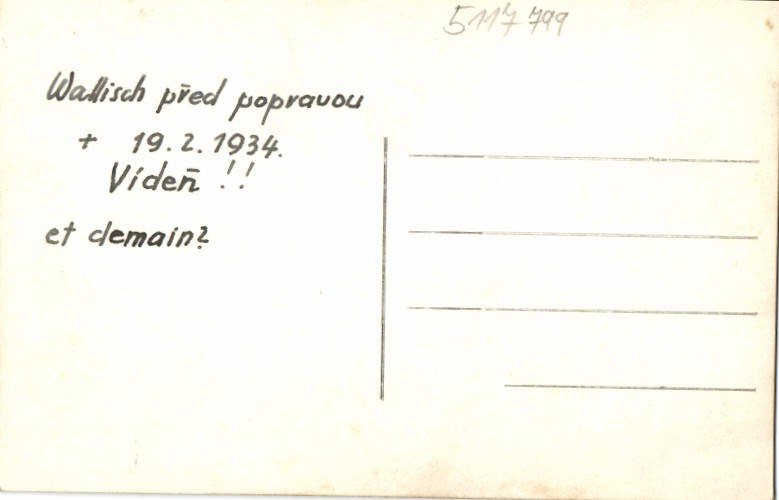 5117 799
Wallisch před popravou
+ 19. 2. 1934.
Vídeň !!
et demain?